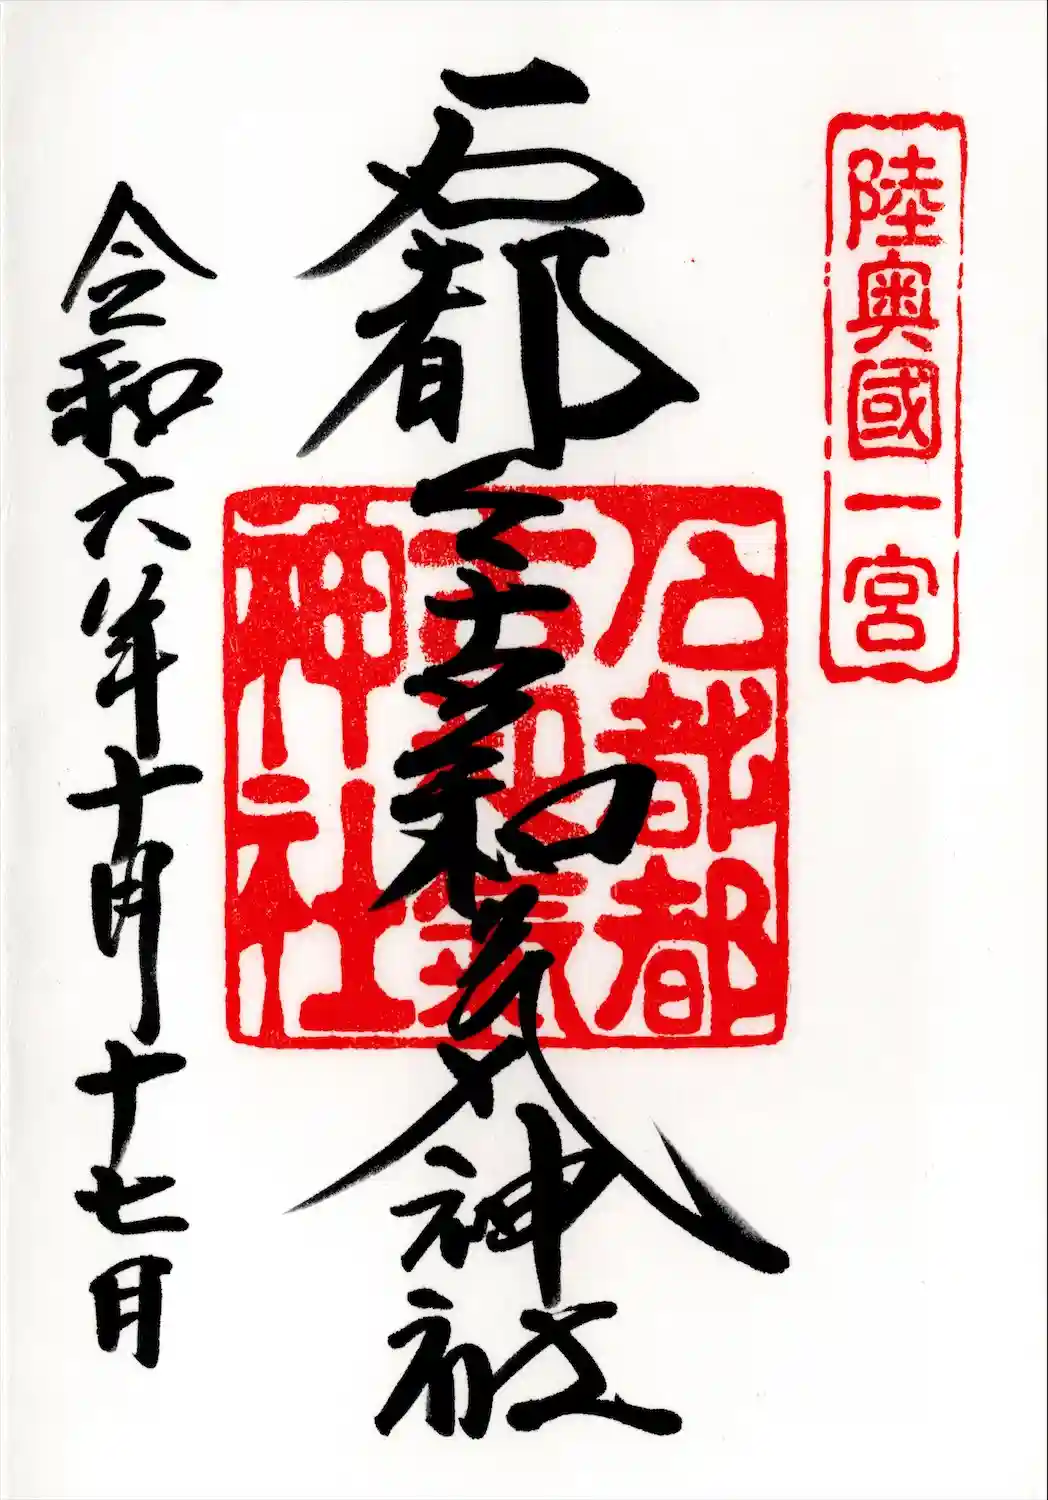 陸奥國一宮
石都々古和気神社
石都都
古和氣
神社
令和六年十月十七日